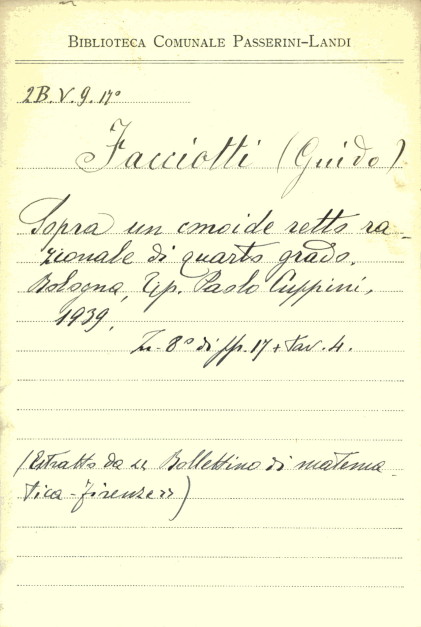 BIBLIOTECA COMUNALE PASSERINI-LANDI
2B.V.9.17º
Facciotti (Guido)
Sopra un cmoide retto ra-
zionale di quarto grado.
Bologna, Tip. Paolo Cuppini,
1939.
In-8º di pp. 17 + Tav. 4.
(Estratto da "Bollettino di matema-
tica - Firenze")